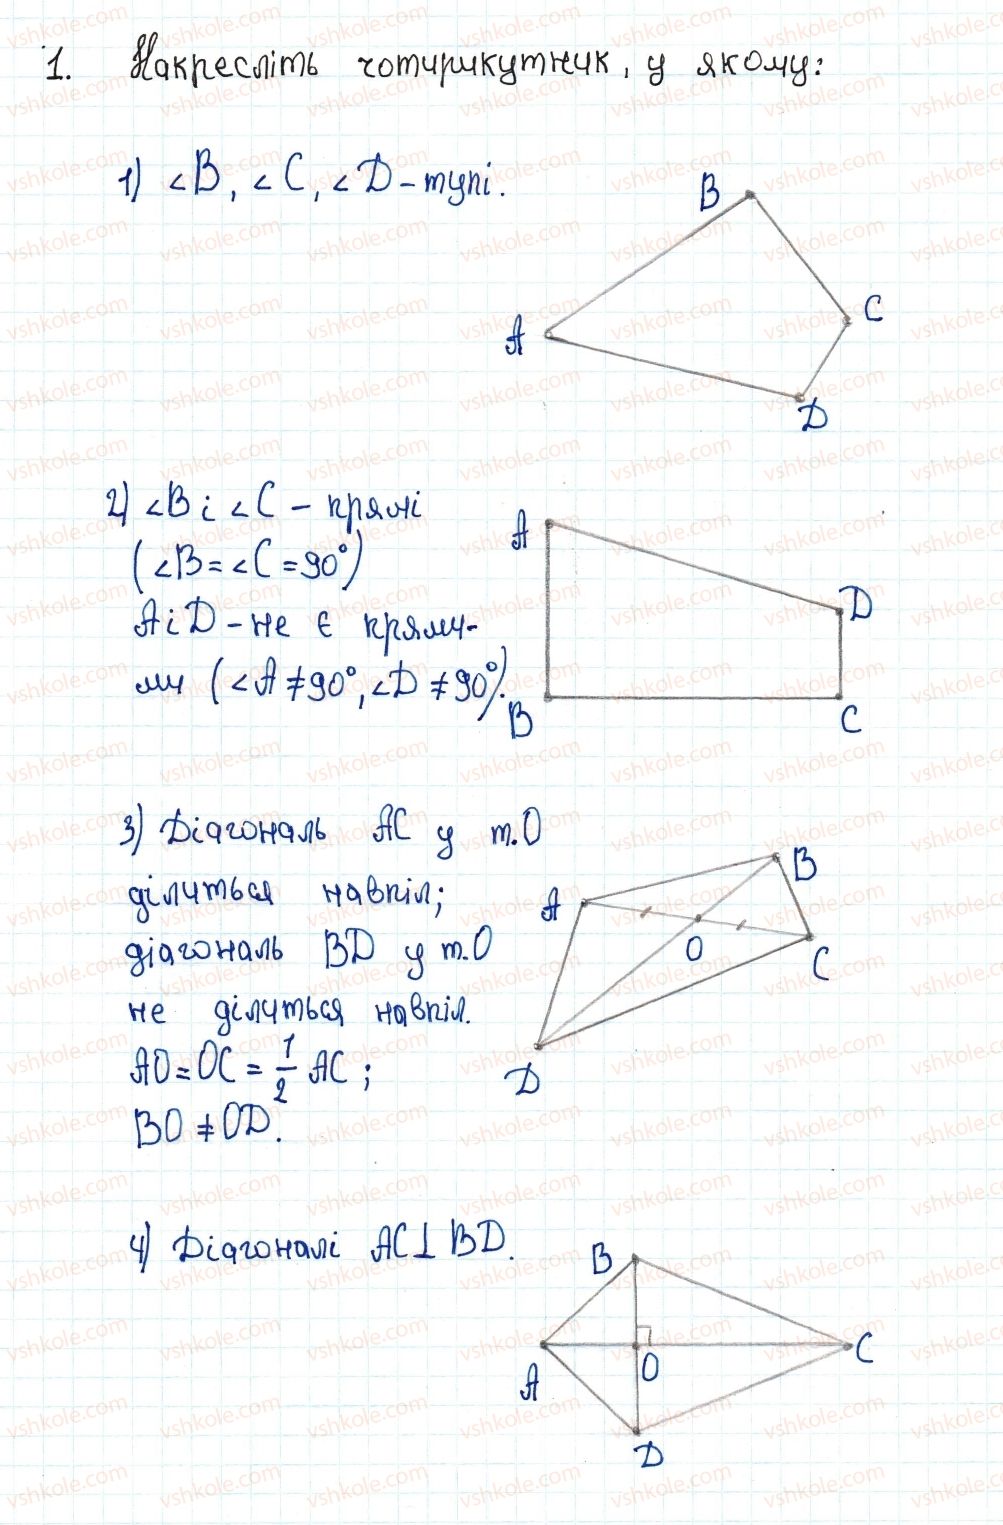 1. Накресліть чотирикутник, у якому:
1) ∠B, ∠C, ∠D – тупі.
B
C
A
D
2) ∠B і ∠C – прямі
(∠B = ∠C = 90°)
A і D – не є прями-
ми (∠A ≠ 90°, ∠D ≠ 90°).
A
D
B
C
3) Діагональ AC у т.O
ділиться навпіл;
діагональ BD у т.O
не ділиться навпіл.
AO = OC = 1/2 AC;
BO ≠ OD.
B
A
O
C
D
4) Діагоналі AC ⊥ BD.
B
C
O
A
D